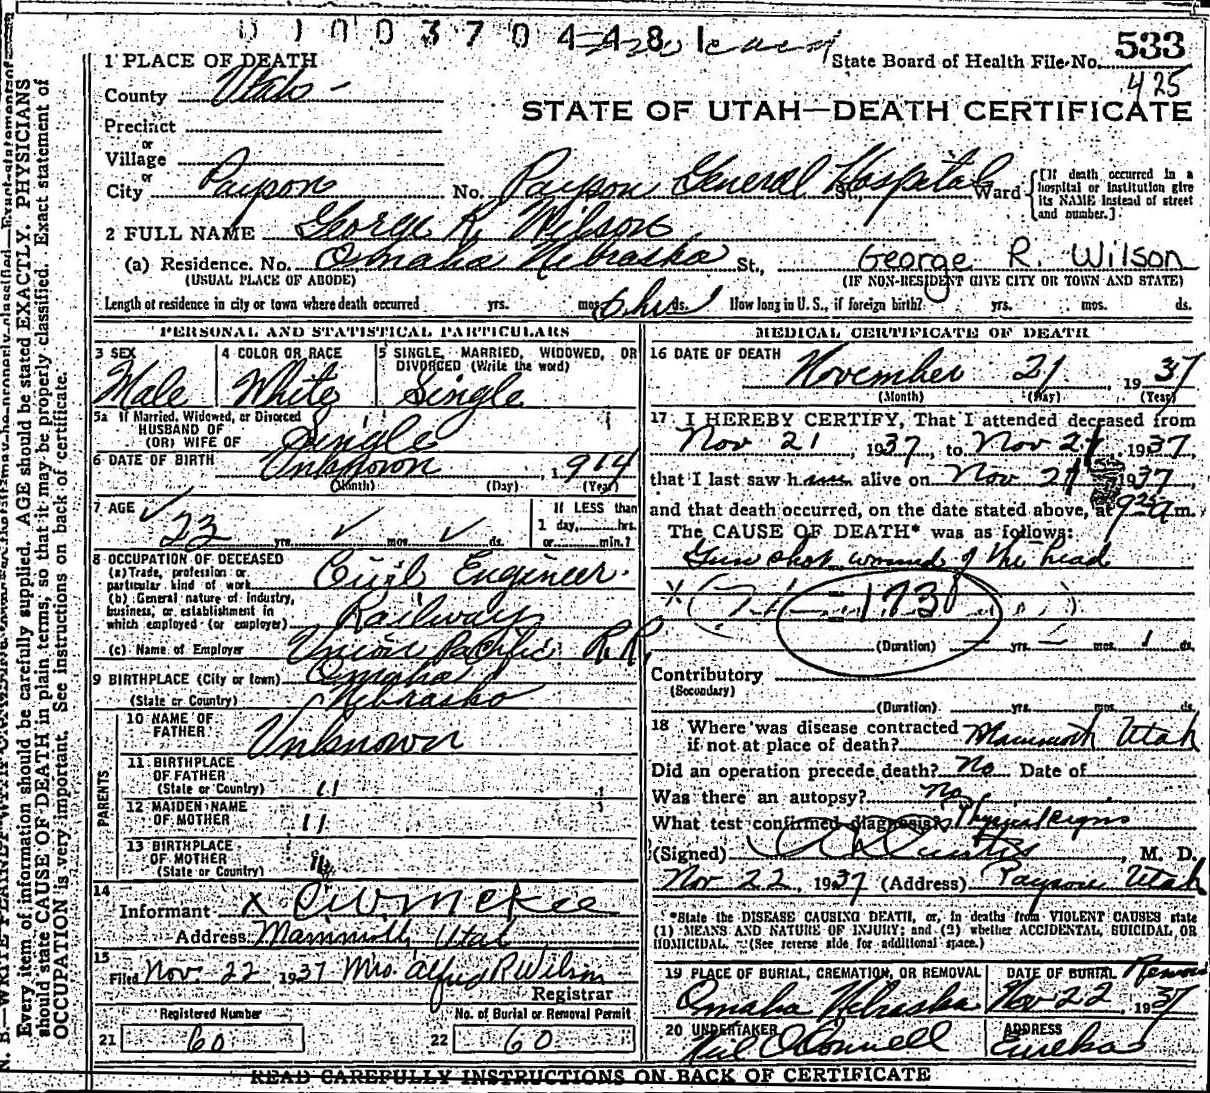 0 1 0 0 3 7 0 4 4 8 1
State Board of Health File No. 533
425
STATE OF UTAH—DEATH CERTIFICATE
1 PLACE OF DEATH
County Utah
Precinct
or
Village
or
City Payson No. Payson General Hospital St., Ward
[If death occurred in a
hospital or institution give
its NAME instead of street
and number.]
2 FULL NAME George R. Wilson
(a) Residence. No. Omaha Nebraska St., George R. Wilson
(USUAL PLACE OF ABODE) (IF NON-RESIDENT GIVE CITY OR TOWN AND STATE)
Length of residence in city or town where death occurred yrs. mos. 6 hrs ds. How long in U. S., if foreign birth? yrs. mos. ds.
PERSONAL AND STATISTICAL PARTICULARS
3 SEX 4 COLOR OR RACE 5 SINGLE, MARRIED, WIDOWED, OR
DIVORCED (Write the word)
Male White Single
5a If Married, Widowed, or Divorced
HUSBAND OF
(OR) WIFE OF Single
6 DATE OF BIRTH Unknown 1914
(Month) (Day) (Year)
7 AGE 23 yrs. mos. ds.
If LESS than
1 day, hrs.
or min.?
8 OCCUPATION OF DECEASED
(a) Trade, profession or
particular kind of work Civil Engineer
(b) General nature of industry,
business, or establishment in
which employed (or employer) Railway
(c) Name of Employer Union Pacific R.R.
9 BIRTHPLACE (City or town) Omaha
(State or Country) Nebraska
PARENTS
10 NAME OF
FATHER Unknown
11 BIRTHPLACE
OF FATHER
(State or Country) 11
12 MAIDEN NAME
OF MOTHER 11
13 BIRTHPLACE
OF MOTHER
(State or Country) 11
14
Informant X C W McKie
Address Mammoth, Utah
15
Filed Nov. 22 1937 Mrs. Alfred R Wilson
Registrar
Registered Number No. of Burial or Removal Permit
21 60 22 60
MEDICAL CERTIFICATE OF DEATH
16 DATE OF DEATH November 21, 1937
(Month) (Day) (Year)
17 I HEREBY CERTIFY, That I attended deceased from
Nov 21, 1937, to Nov 21, 1937,
that I last saw him alive on Nov 21 1937,
and that death occurred, on the date stated above, at 9 20 a m.
The CAUSE OF DEATH* was as follows:
Gun shot wound of the head
173
(Duration) yrs. mos. 1 ds.
Contributory
(Secondary)
(Duration) yrs. mos. ds.
18 Where was disease contracted
if not at place of death? Mammoth Utah
Did an operation precede death? No Date of
Was there an autopsy? no
What test confirmed diagnosis? Physical signs
(Signed) Curtis, M. D.
Nov 22, 1937 (Address) Payson Utah
*State the DISEASE CAUSING DEATH, or, in deaths from VIOLENT CAUSES state
(1) MEANS AND NATURE OF INJURY; and (2) whether ACCIDENTAL, SUICIDAL, OR
HOMICIDAL. (See reverse side for additional space.)
19 PLACE OF BURIAL, CREMATION, OR REMOVAL DATE OF BURIAL
Omaha Nebraska Nov 22 1937
20 UNDERTAKER ADDRESS
Neil O'Connell Eureka
READ CAREFULLY INSTRUCTIONS ON BACK OF CERTIFICATE
Every item of information should be carefully supplied. AGE should be stated EXACTLY. PHYSICIANS
should state CAUSE OF DEATH in plain terms, so that it may be properly classified. Exact statement of
OCCUPATION is very important. See instructions on back of certificate.